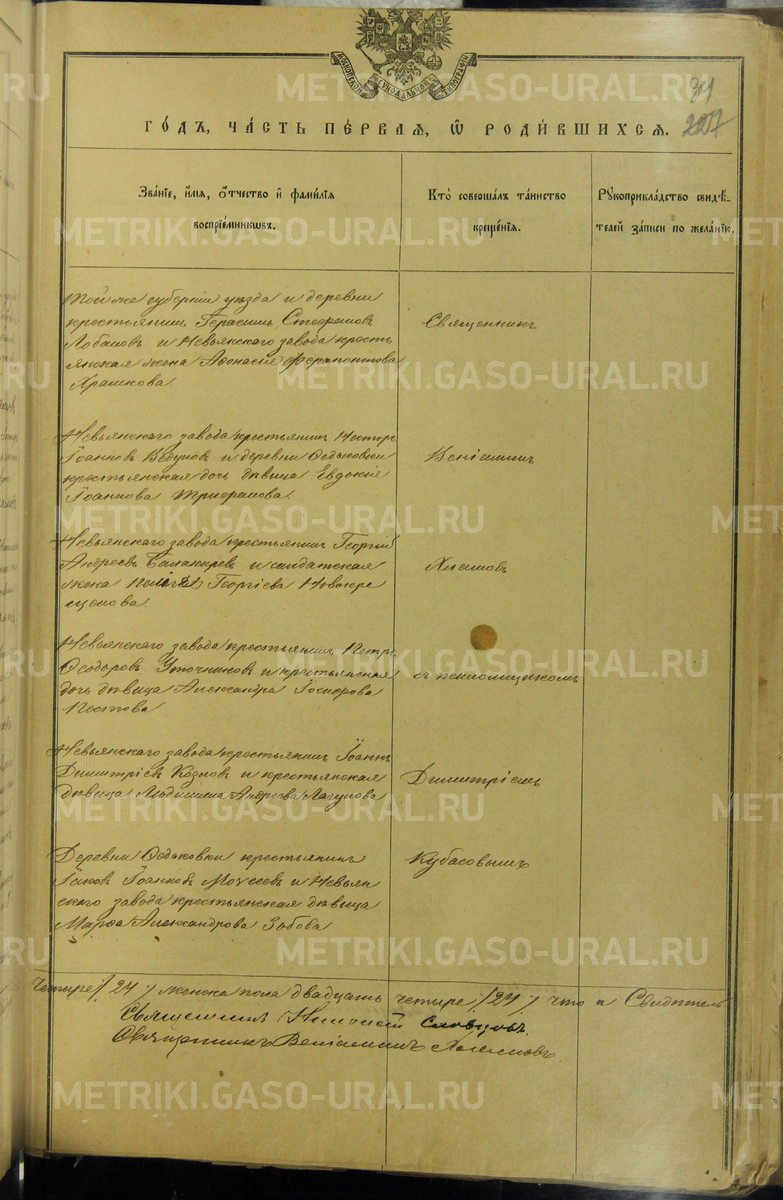 МОСКОВСКОЙ СѴНОДАЛЬНОЙ ТИПОГРАФІИ
34
227
ГО́ДЪ, ЧА́СТЬ ПЕ́РВАЯ, Ѡ҆ РОДИ́ВШИХСЯ.
Зва́нїе, и҆́мя, ѻ҆́тчество и҆ фами́лїя
воспрїе́мникѡвъ.
Кто̀ соверша́лъ та́инство
креще́нїя.
Рꙋкоприкла́дство свидѣ́-
телей за́писи по жела́нїю.
Той же губерніи уезда и деревни
крестьянинъ Герасимъ Стефановъ
Лобановъ и Невьянскаго завода кресть
янская жена Афанасія Ферапонтова
Священникъ
Невьянскаго завода крестьянинъ Несторъ
Іоанновъ и деревни Ѳедьковки
крестьянская дочь дѣвица Евдокія
Іоаннова Трифанова.
Веніаминъ
Невьянскаго завода крестьянинъ Георгій
Андреевъ Балакиревъ и солдатская
жена Георгіева Новокре
щенова.
Невьянскаго завода крестьянинъ Петръ
Ѳеодоровъ Уточниковъ и крестьянская
дочь дѣвица Александра
Пестова
съ псаломщикомъ
Невьянскаго завода крестьянинъ Іоаннъ
Димитріевъ Козловъ и крестьянская
дѣвица Людмила Андреева Лагунова
Димитріемъ
Деревни Ѳедьковки крестьянинъ
Іаковъ Іоанновъ Моѵсеевъ и Невьян
скаго завода крестьянская дѣвица
Марѳа Александрова Зобова
Кубасовымъ
четыре /24/ женска пола двадцать четыре /24/ что и Свидетель
Священникъ Словцовъ.
Священникъ Веніаминъ
METRIKI.GASO-URAL.RU